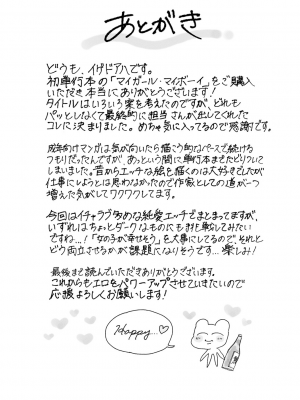 あとがき
どうも、イゲドアハです。
初単行本の「マイガール・マイボーイ」をご購入
いただき本当にありがとうございます!
タイトルはいろいろ案を考えたのですが、どれも
パッとしなくて最終的に担当さんが出してくれた
コレに決まりました。めちゃ気に入ってるので感謝です。
成年向けマンガは気が向いたら描こう的なペースで続ける
つもりだったんですが、あっという間に単行本までたどりついて
しまいました。昔からエッチな絵を描くのは大好きでしたが
仕事にしようとは思わなかったので作家としての道が一つ
増えた気がしてワクワクしてます。
今回はイチャラブ多めな純愛エッチでまとまってますが、
いずれはちょっとダークなものにも挑戦してみたい
ですね…!「女の子が幸せそう」も大事にしてるので、それと
どう両立させるかが課題になりそうです…楽しみ!
最後まで読んでいただきありがとうございます。
これからもエロをパワーアップさせていきたいので
応援よろしくお願いします!
Happy...♡